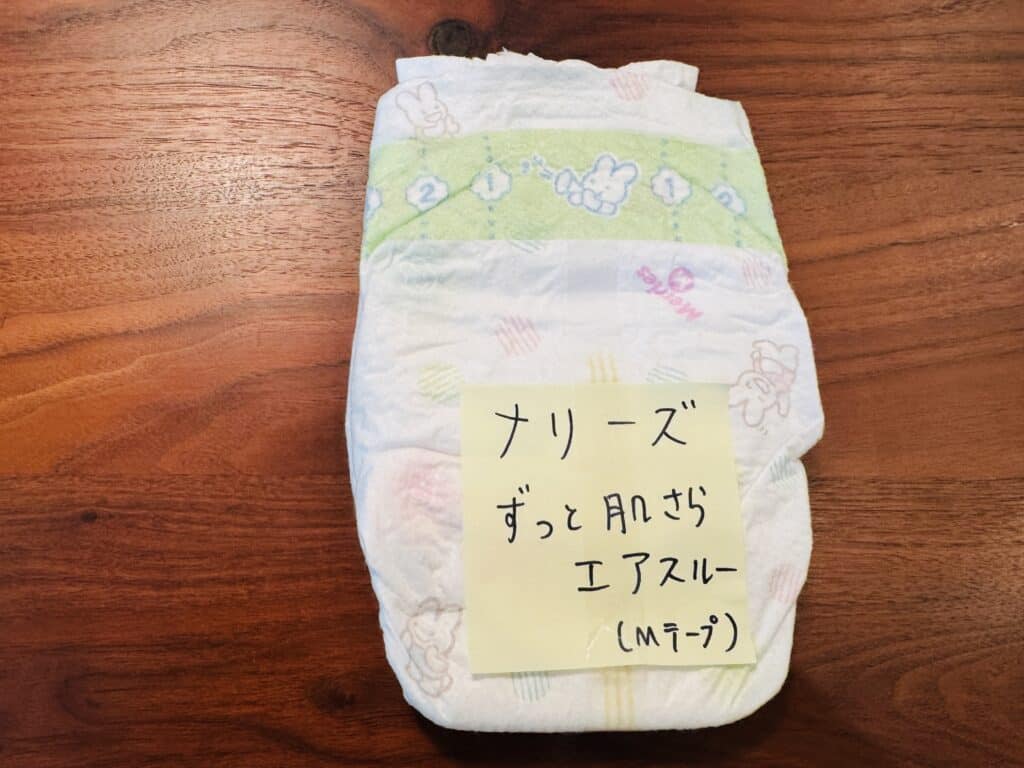 2 1 1 2
Merries
ナリーズ
ずっと肌さら
エアスルー
(Mテープ)